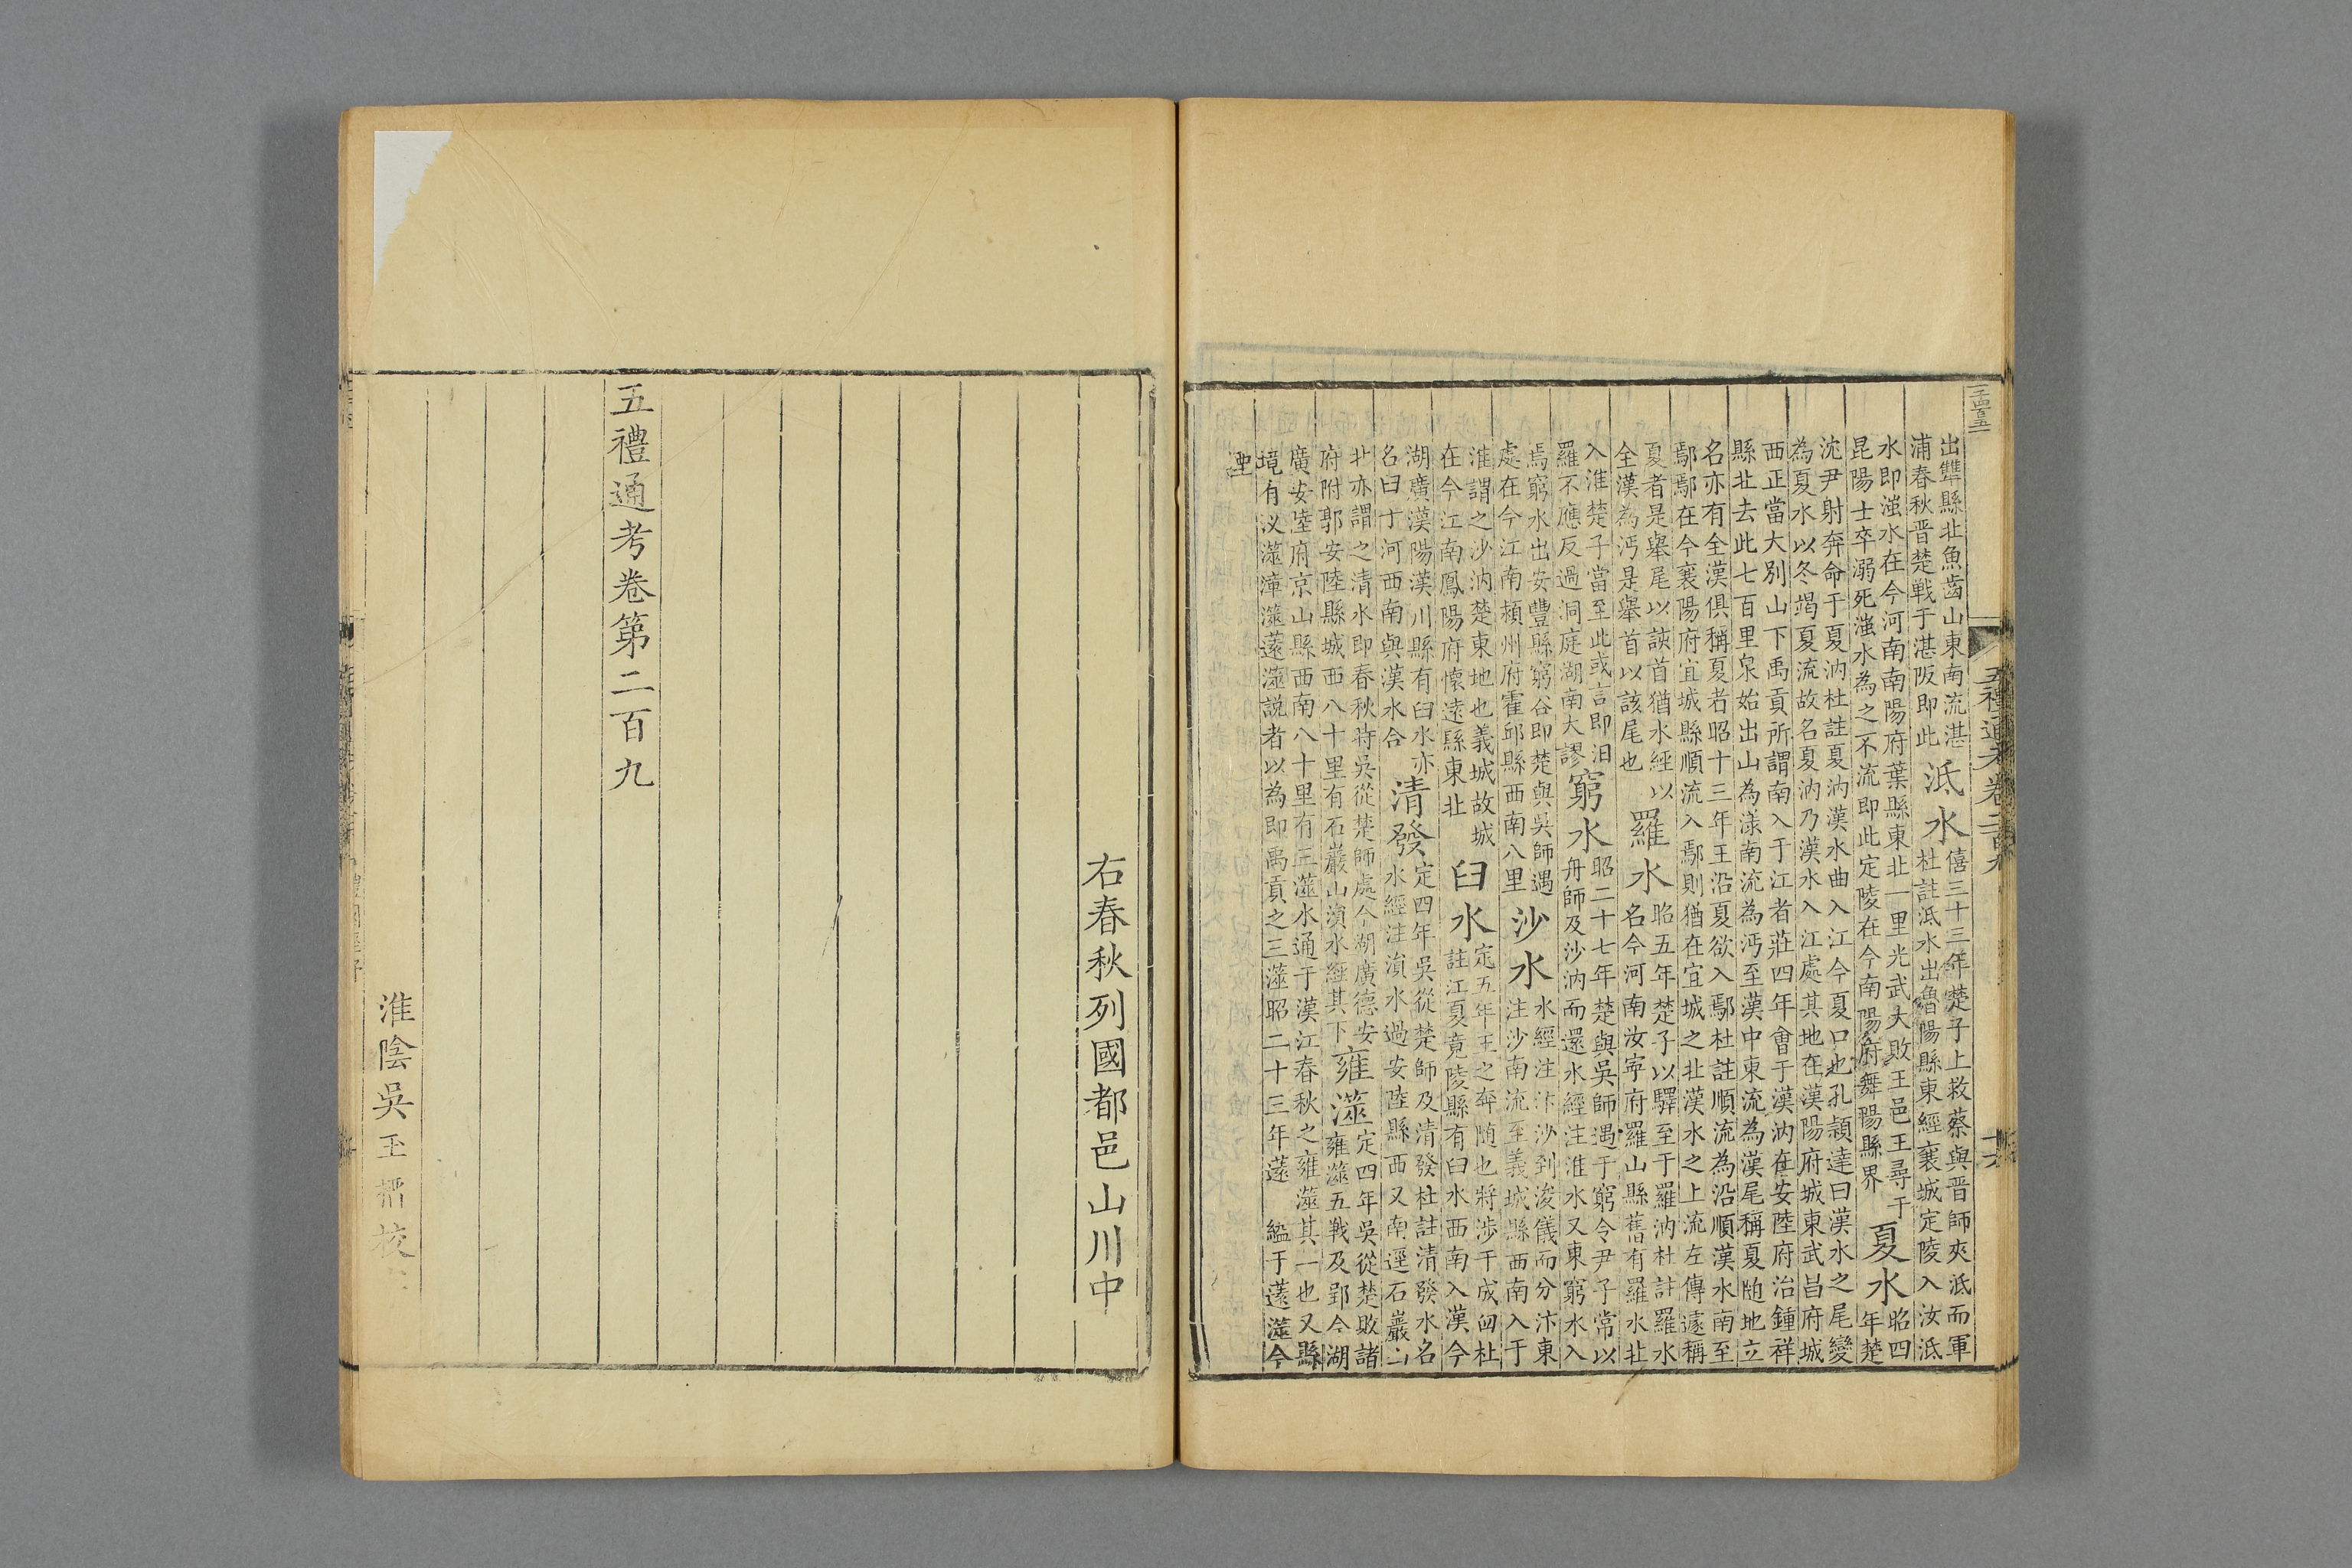 出犨縣北魚齒山東南流湛
浦春秋晋楚戰于湛阪即此
泜水
僖三十三年楚子上救蔡與晋師夾泜而軍
杜註泜水出魯陽縣東經襄城定陵入汝泜
水即滍水在今河南南陽府葉縣東北一里光武大敗王邑王尋于
昆陽士卒溺死滍水為之不流即此定陵在今南陽府舞陽縣界
夏水
昭四
年楚
沈尹射奔命于夏汭杜註夏汭漢水曲入江今夏口也孔頴達曰漢水之尾變
為夏水以冬竭夏流故名夏汭乃漢水入江處其地在漢陽府城東武昌府城
西正當大別山下禹貢所謂南入于江者莊四年會于漢汭在安陸府治鍾祥
縣北去此七百里泉始出山為漾南流為沔至漢中東流為漢尾稱夏随地立
名亦有全漢俱稱夏者昭十三年王沿夏欲入鄢杜註順流為沿順漢水南至
鄢鄢在今襄陽府宜城縣順流入鄢則猶在宜城之北漢水之上流左傳遽稱
夏者是舉尾以該首猶水經以
全漢為沔是舉首以該尾也
羅水
昭五年楚子以驛至于羅汭杜註羅水
名今河南汝寧府羅山縣舊有羅水北
入淮楚子當至此或言即汨
羅不應反過洞庭湖南大謬
窮水
昭二十七年楚與吳師遇于窮令尹子常以
舟師及沙汭而還水經注淮水又東窮水入
焉窮水出安豐縣窮谷即楚與吳師遇
處在今江南頴州府霍邱縣西南八里
沙水
水經注汴沙到浚儀而分汴東
注沙南流至義城縣西南入于
淮謂之沙汭楚東地也義城故城
在今江南鳳陽府懷遠縣東北
臼水
定五年王之奔随也將涉于成臼杜
註江夏竟陵縣有臼水西南入漢今
湖廣漢陽漢川縣有臼水亦
名曰丁河西南與漢水合
清發
定四年吳從楚師及清發杜註清發水名
水經注溳水過安陸縣西又南逕石巖山
北亦謂之清水即春秋時吳從楚師處今湖廣德安
府附郭安陸縣城西八十里有石巖山溳水經其下
雍澨
定四年吳從楚敗諸
雍澨五戰及郢今湖
廣安陸府京山縣西南八十里有三澨水通于漢江春秋之雍澨其一也又縣
境有汊澨漳澨薳澨説者以為即禹貢之三澨昭二十三年薳　縊于薳澨今
湮
五禮通考卷二百九
右春秋列國都邑山川中
五禮通考卷第二百九
淮陰吳玉搢校